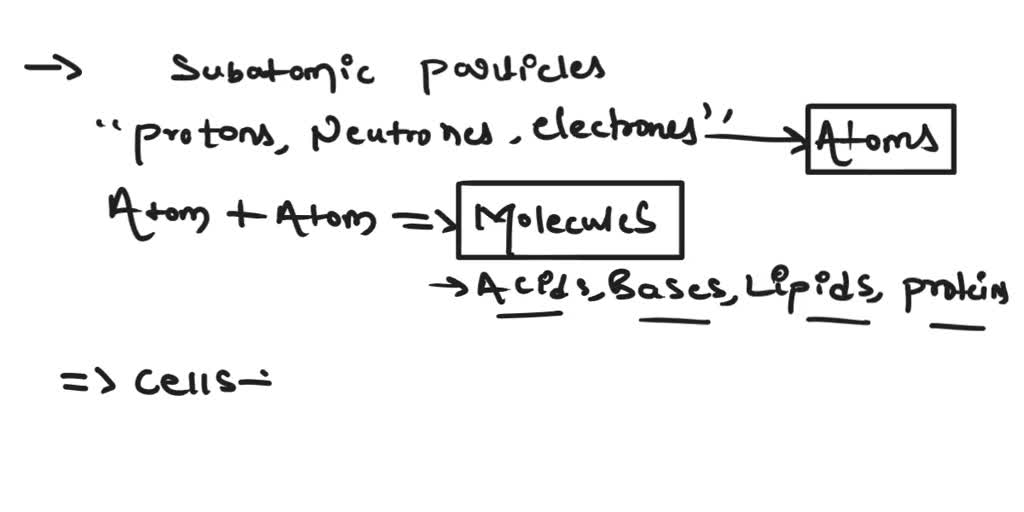 → Subatomic particles
"protons, Neutrones, electrones" → Atoms
Atom + Atom => Molecules
→ Acids, Bases, Lipids, proteins
=> cells -